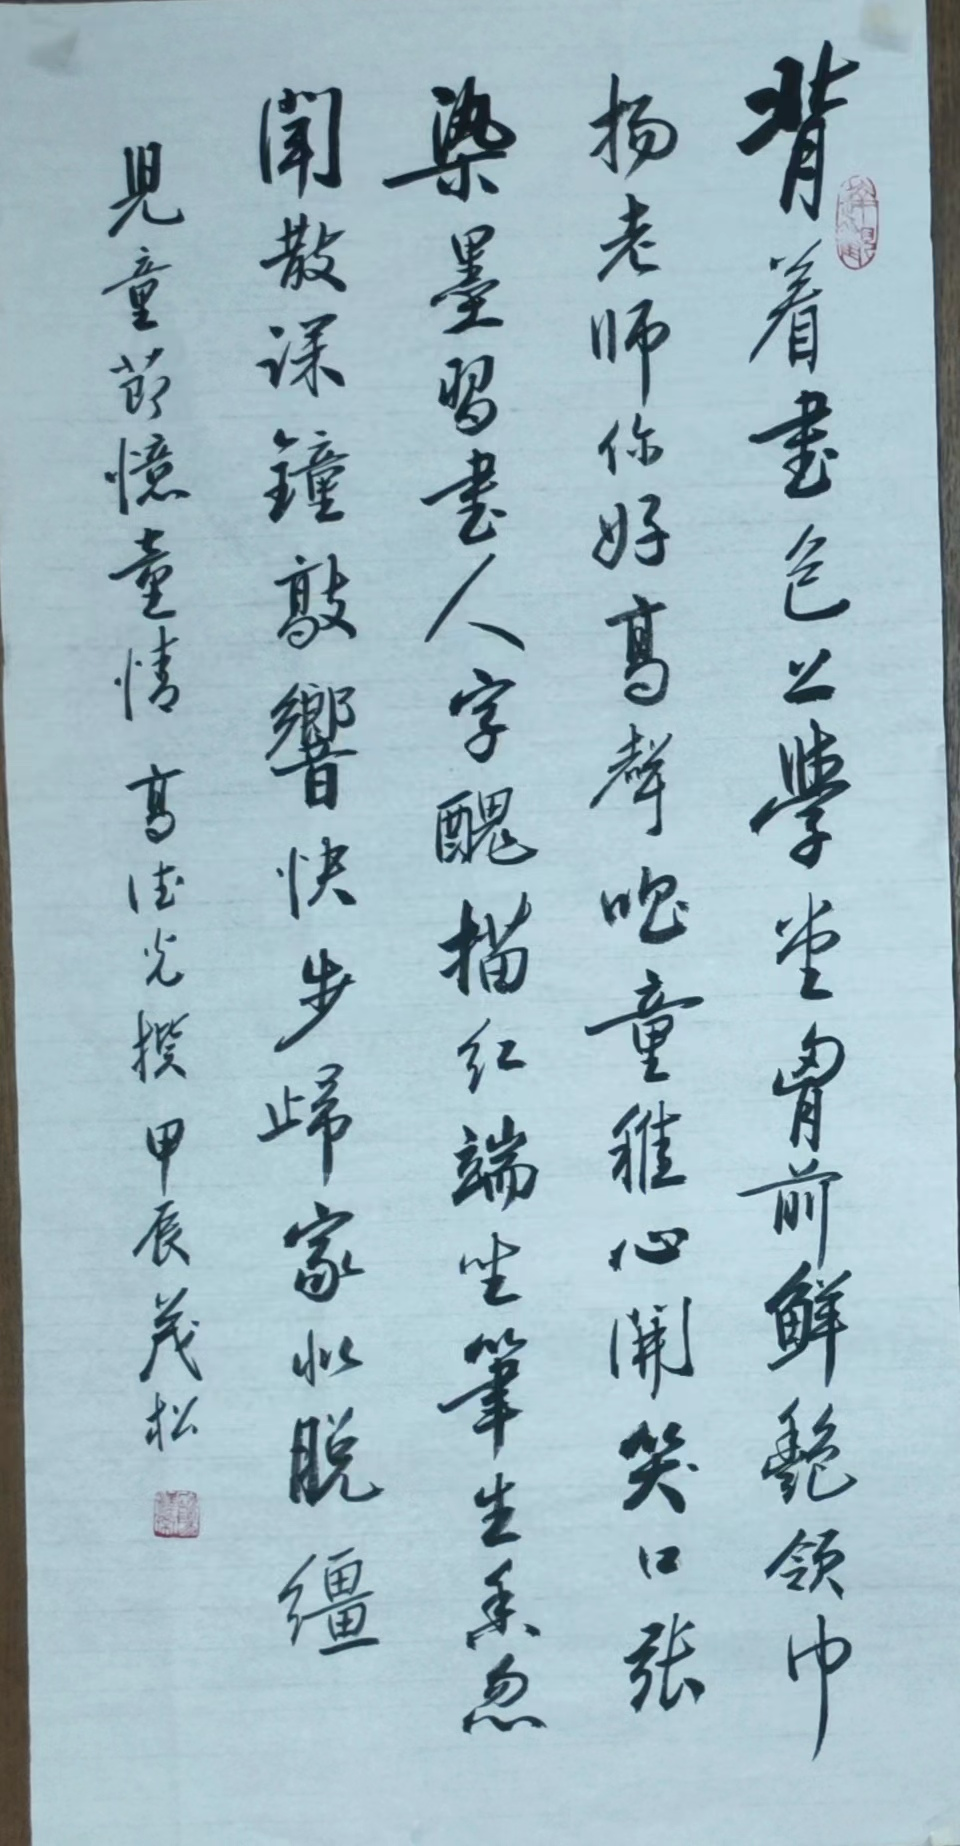 背着書包上學堂胷前鮮艷領巾
扬老师你好高聲喊童稚心開笑口張
染墨習書人字醜描红端坐筆生香忽
聞散課鐘敲響快步歸家似脱繮
児童節憶童情 高德光撰 甲辰茂松